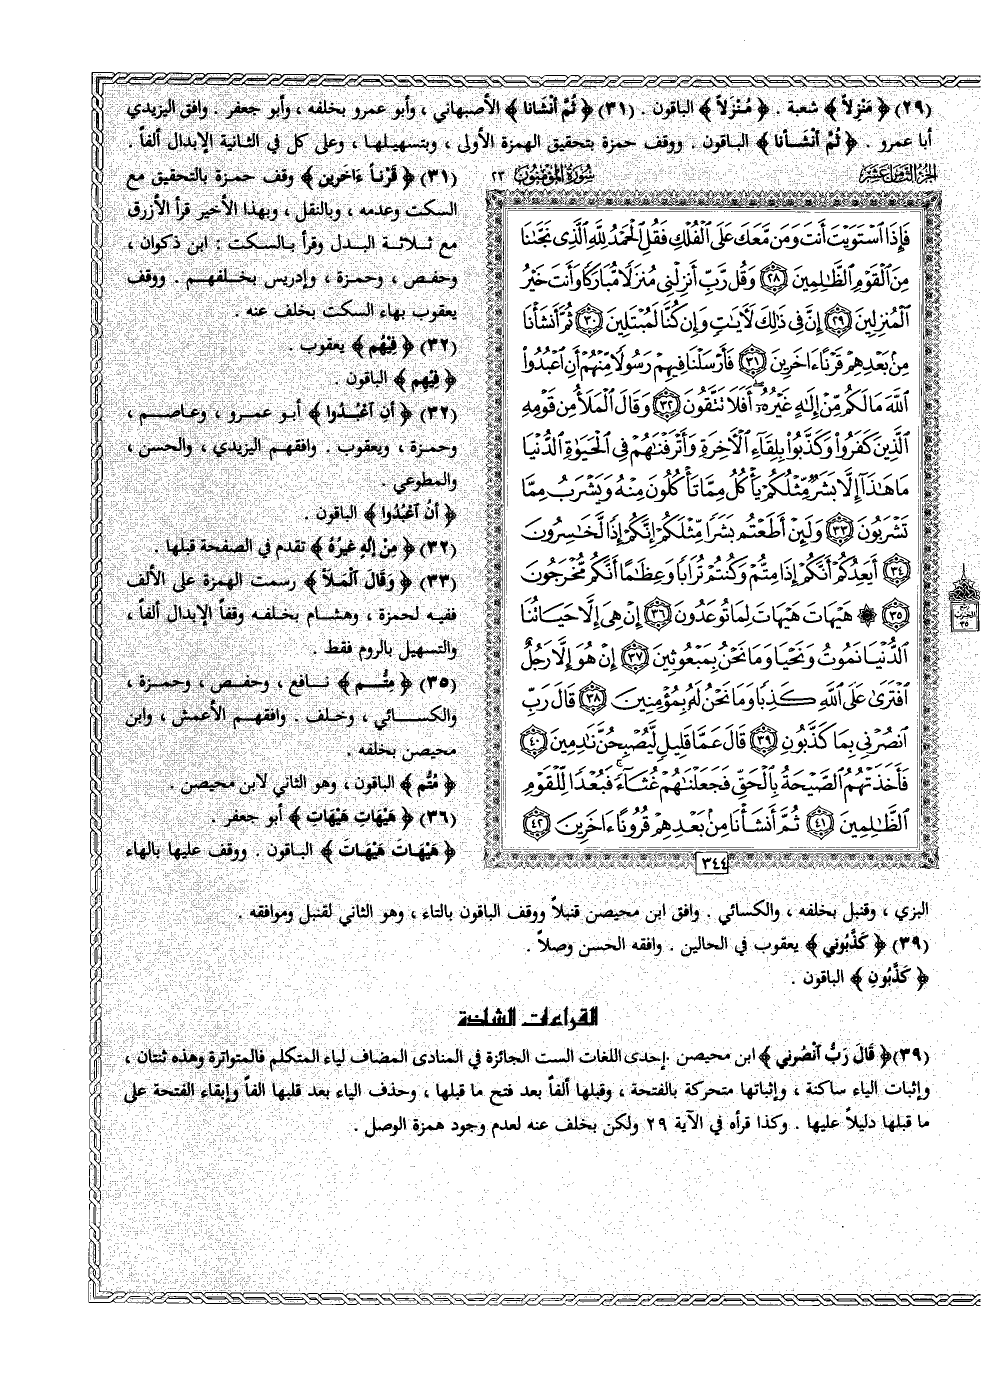 (٢٩) ﴿ مَنْزِلاً ﴾ شعبة . ﴿ مُنْزَلاً ﴾ الباقون . (٣١) ﴿ ثُمَّ أنْشَانا ﴾ الأصبهاني ، وأبو عمرو بخلفه ، وأبو جعفر . وافق اليزيدي
أبا عمرو . ﴿ ثُمَّ أَنْشَأنا ﴾ الباقون . ووقف حمزة بتحقيق الهمزة الأولى ، وبتسهيلها ، وعلى كل في الثانية الإبدال ألفاً .
الجزء الثامن عشر
سورة المؤمنون ٢٣
فَإِذَا ٱسْتَوَيْتَ أَنتَ وَمَن مَّعَكَ عَلَى ٱلْفُلْكِ فَقُلِ ٱلْحَمْدُ لِلَّهِ ٱلَّذِى نَجَّىٰنَا
مِنَ ٱلْقَوْمِ ٱلظَّٰلِمِينَ ٢٨ وَقُل رَّبِّ أَنزِلْنِى مُنزَلًا مُّبَارَكًا وَأَنتَ خَيْرُ
ٱلْمُنزِلِينَ ٢٩ إِنَّ فِى ذَٰلِكَ لَـَٔايَٰتٍ وَإِن كُنَّا لَمُبْتَلِينَ ٣٠ ثُمَّ أَنشَأْنَا
مِنۢ بَعْدِهِمْ قَرْنًا ءَاخَرِينَ ٣١ فَأَرْسَلْنَا فِيهِمْ رَسُولًا مِّنْهُمْ أَنِ ٱعْبُدُوا۟
ٱللَّهَ مَا لَكُم مِّنْ إِلَٰهٍ غَيْرُهُۥٓ أَفَلَا تَتَّقُونَ ٣٢ وَقَالَ ٱلْمَلَأُ مِن قَوْمِهِ
ٱلَّذِينَ كَفَرُوا۟ وَكَذَّبُوا۟ بِلِقَآءِ ٱلْـَٔاخِرَةِ وَأَتْرَفْنَٰهُمْ فِى ٱلْحَيَوٰةِ ٱلدُّنْيَا
مَا هَٰذَآ إِلَّا بَشَرٌ مِّثْلُكُمْ يَأْكُلُ مِمَّا تَأْكُلُونَ مِنْهُ وَيَشْرَبُ مِمَّا
تَشْرَبُونَ ٣٣ وَلَئِنْ أَطَعْتُم بَشَرًا مِّثْلَكُمْ إِنَّكُمْ إِذًا لَّخَٰسِرُونَ
٣٤ أَيَعِدُكُمْ أَنَّكُمْ إِذَا مِتُّمْ وَكُنتُمْ تُرَابًا وَعِظَٰمًا أَنَّكُم مُّخْرَجُونَ
٣٥ ۞ هَيْهَاتَ هَيْهَاتَ لِمَا تُوعَدُونَ ٣٦ إِنْ هِىَ إِلَّا حَيَاتُنَا
ٱلدُّنْيَا نَمُوتُ وَنَحْيَا وَمَا نَحْنُ بِمَبْعُوثِينَ ٣٧ إِنْ هُوَ إِلَّا رَجُلٌ
ٱفْتَرَىٰ عَلَى ٱللَّهِ كَذِبًا وَمَا نَحْنُ لَهُۥ بِمُؤْمِنِينَ ٣٨ قَالَ رَبِّ
ٱنصُرْنِى بِمَا كَذَّبُونِ ٣٩ قَالَ عَمَّا قَلِيلٍ لَّيُصْبِحُنَّ نَٰدِمِينَ ٤٠
فَأَخَذَتْهُمُ ٱلصَّيْحَةُ بِٱلْحَقِّ فَجَعَلْنَٰهُمْ غُثَآءً ۚ فَبُعْدًا لِّلْقَوْمِ
ٱلظَّٰلِمِينَ ٤١ ثُمَّ أَنشَأْنَا مِنۢ بَعْدِهِمْ قُرُونًا ءَاخَرِينَ ٤٢
٣٤٤
الحزب
٣٥
(٣١) ﴿ قَرْناً ءَاخَرين ﴾ وقف حمزة بالتحقيق مع
السكت وعدمه ، وبالنقل ، وبهذا الأخير قرأ الأزرق
مع ثلاثة البدل وقرأ بالسكت : ابن ذكوان ،
وحفص ، وحمزة ، وإدريس بخلفهم . ووقف
يعقوب بهاء السكت بخلف عنه .
(٣٢) ﴿ فِيْهُم ﴾ يعقوب .
﴿ فِيْهِم ﴾ الباقون .
(٣٢) ﴿ أَنِ آعْبُدُوا ﴾ أبو عمرو ، وعاصم ،
وحمزة ، ويعقوب . وافقهم اليزيدي ، والحسن ،
والمطوعي .
﴿ أَنُ آعْبُدُوا ﴾ الباقون .
(٣٢) ﴿ مِنْ إِلَهٍ غيرُهُ ﴾ تقدم في الصفحة قبلها .
(٣٣) ﴿ وَقَالَ آلْمَلأُ ﴾ رسمت الهمزة على الألف
ففيه لحمزة ، وهشام بخلفه وقفاً الإبدال ألفاً ،
والتسهيل بالروم فقط .
(٣٥) ﴿ مِتُّم ﴾ نافع ، وحفص ، وحمزة ،
والكسائي ، وخلف . وافقهم الأعمش ، وابن
محيصن بخلفه .
﴿ مُتُّم ﴾ الباقون ، وهو الثاني لابن محيصن .
(٣٦) ﴿ هَيْهَاتِ هَيْهَاتِ ﴾ أبو جعفر .
﴿ هَيْهَاتَ هَيْهَاتَ ﴾ الباقون . ووقف عليها بالهاء
البزي ، وقنبل بخلفه ، والكسائي . وافق ابن محيصن قنبلاً ووقف الباقون بالتاء ، وهو الثاني لقنبل وموافقه .
(٣٩) ﴿ كَذَّبُوني ﴾ يعقوب في الحالين . وافقه الحسن وصلاً .
﴿ كَذَّبُونِ ﴾ الباقون .
القراءات الشاذة
(٣٩) ﴿ قَالَ رَبُّ آنْصُرني ﴾ ابن محيصن .إحدى اللغات الست الجائزة في المنادى المضاف لياء المتكلم فالمتواترة وهذه ثنتان ،
وإثبات الياء ساكنة ، وإثباتها متحركة بالفتحة ، وقبلها ألفاً بعد فتح ما قبلها ، وحذف الياء بعد قلبها الفاً وإبقاء الفتحة على
ما قبلها دليلاً عليها . وكذا قرأه في الآية ٢٩ ولكن بخلف عنه لعدم وجود همزة الوصل .